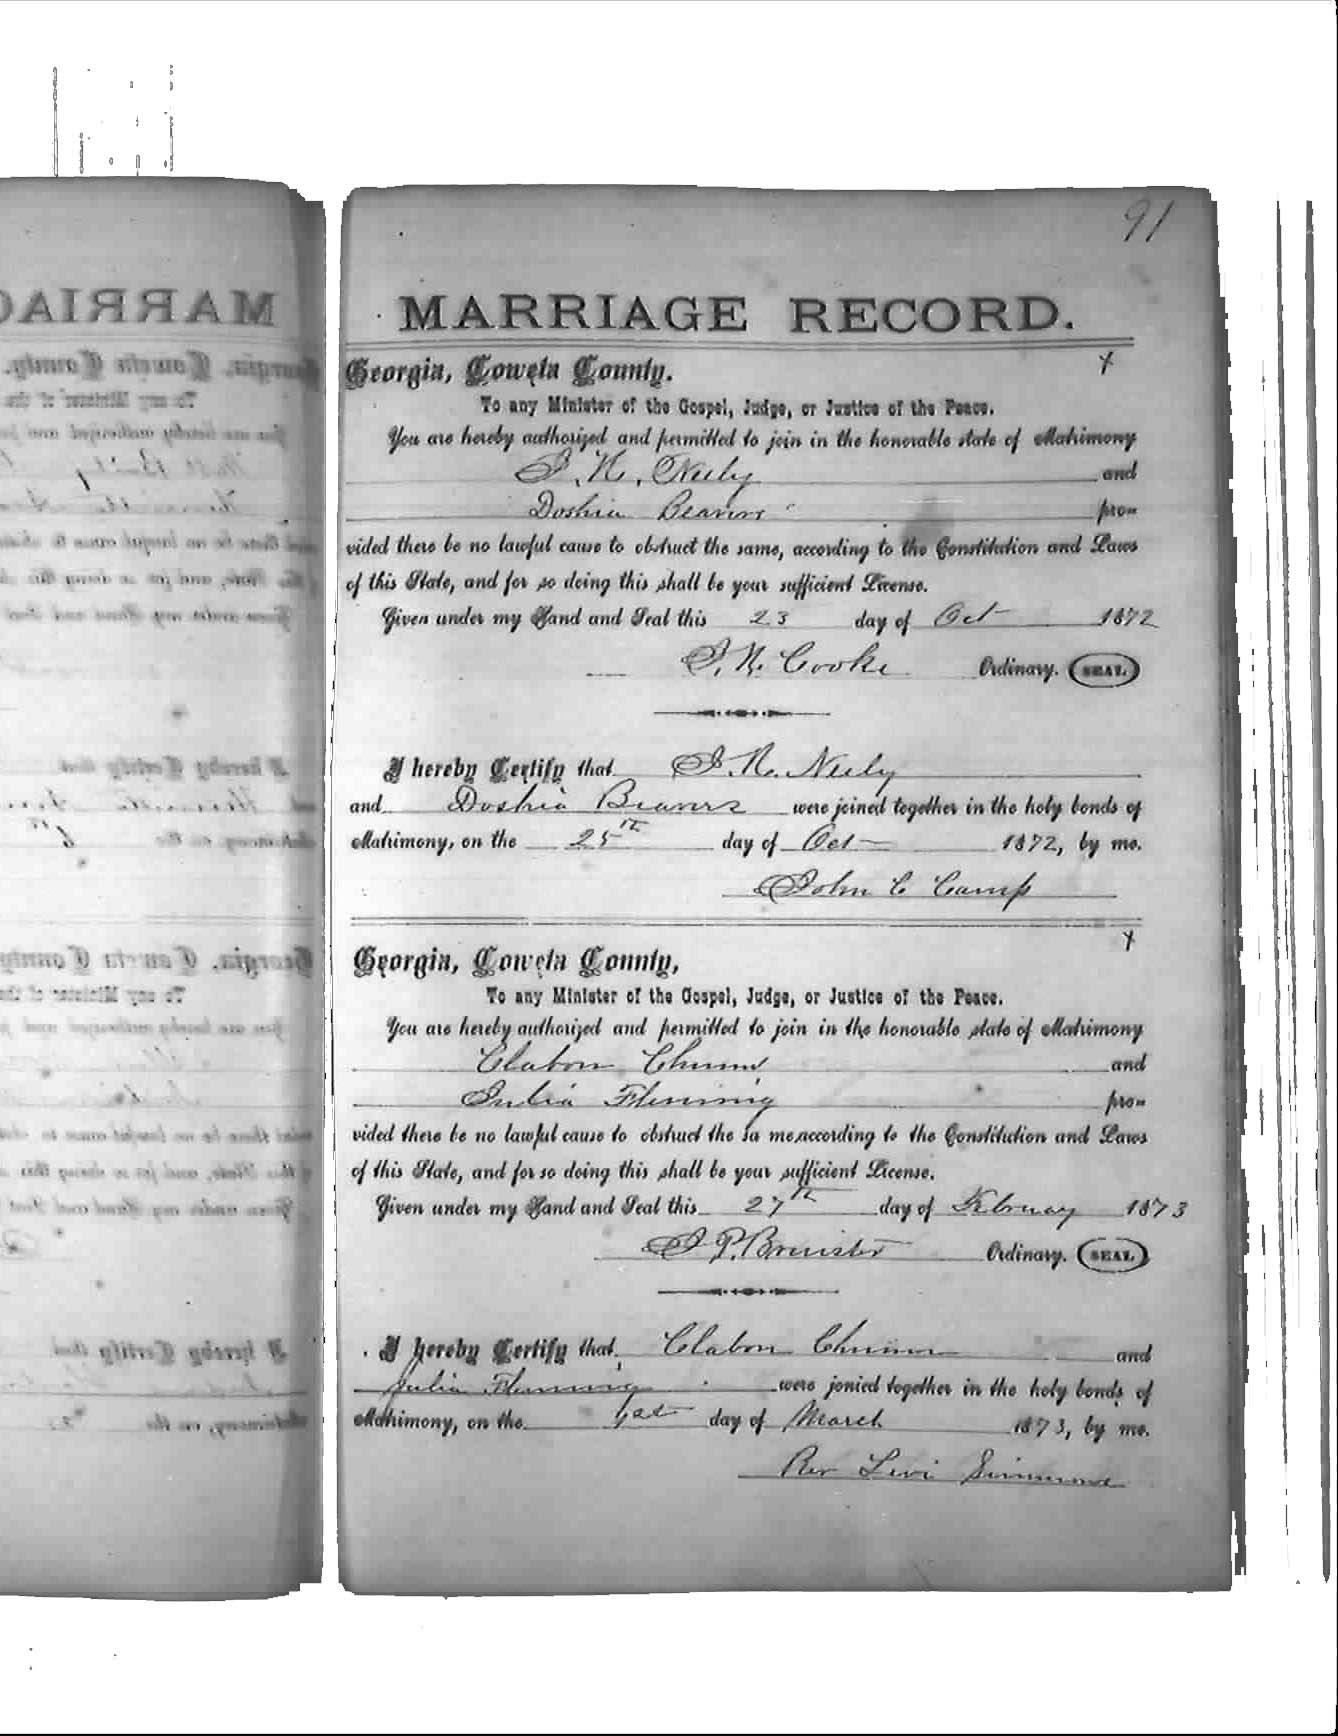 91
MARRIAGE RECORD.
Georgia, Coweta County.
To any Minister of the Gospel, Judge, or Justice of the Peace.
You are hereby authorized and permitted to join in the honorable state of Matrimony
J. N. Neely and
Doshia Beavers pro-
vided there be no lawful cause to obstruct the same, according to the Constitution and Laws
of this State, and for so doing this shall be your sufficient License.
Given under my Hand and Seal this 23 day of Oct 1872
J. N. Cooke Ordinary. SEAL.
I hereby Certify that J. N. Neely
and Doshia Beavers were joined together in the holy bonds of
Matrimony, on the 25th day of Oct 1872, by me.
John C Camp
Georgia, Coweta County,
To any Minister of the Gospel, Judge, or Justice of the Peace.
You are hereby authorized and permitted to join in the honorable state of Matrimony
Clabon and
Julia Fleming pro-
vided there be no lawful cause to obstruct the sa me, according to the Constitution and Laws
of this State, and for so doing this shall be your sufficient License.
Given under my Hand and Seal this 27th day of February 1873
J P. Brewster Ordinary. SEAL
I hereby Certify that Clabon and
Julia Fleming were jonied together in the holy bonds of
Matrimony, on the 1st day of March 1873, by me.
Rev Levi Simmons